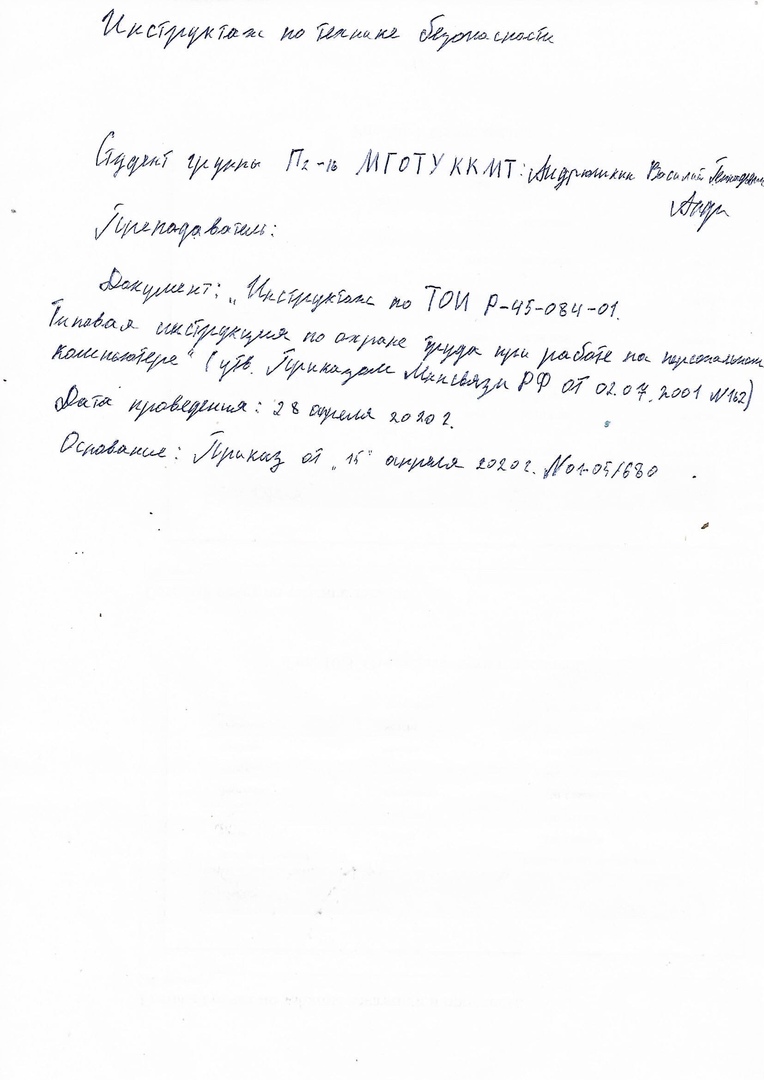 Инструктаж по технике безопасности
Студент группы П2-16 МГОТУ ККМТ: Андрюшкин Василий Геннадьевич
Андр
Преподаватель:
Документ: „Инструктаж по ТОИ Р-45-084-01.
Типовая инструкция по охране труда при работе на персональном
компьютере" (утв. Приказом Минсвязи РФ от 02.07.2001 N162)
Дата проведения: 28 апреля 2020 г.
Основание: Приказ от „15" апреля 2020г. N01-05/680